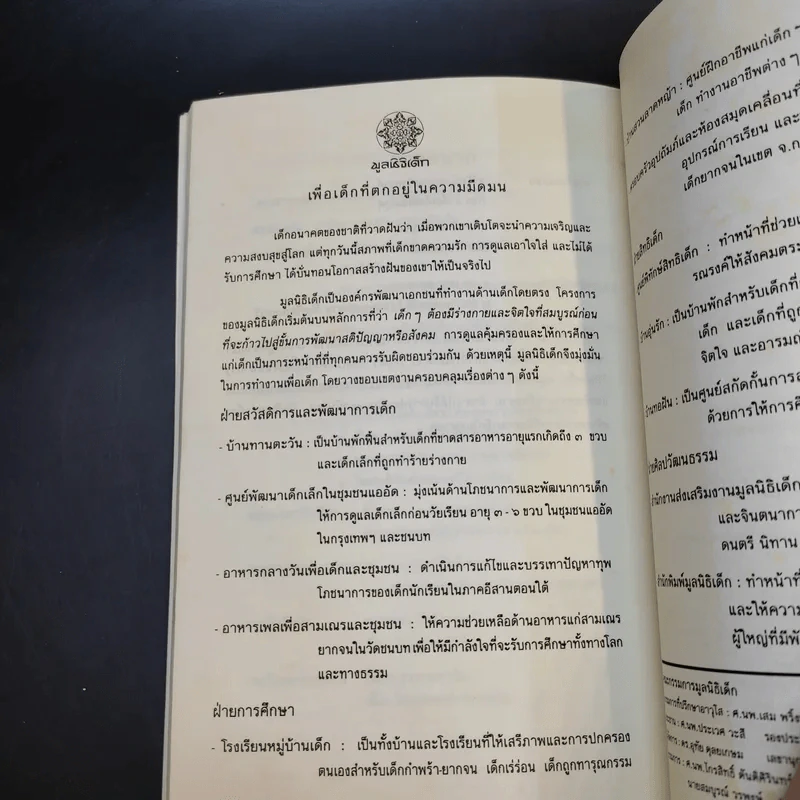 มูลนิธิเด็ก
เพื่อเด็กที่ตกอยู่ในความมืดมน
เด็กอนาคตของชาติที่วาดฝันว่า เมื่อพวกเขาเติบโตจะนำความเจริญและ
ความสงบสุขสู่โลก แต่ทุกวันนี้สภาพที่เด็กขาดความรัก การดูแลเอาใจใส่ และไม่ได้
รับการศึกษา ได้บั่นทอนโอกาสสร้างฝันของเขาให้เป็นจริงไป
มูลนิธิเด็กเป็นองค์กรพัฒนาเอกชนที่ทำงานด้านเด็กโดยตรง โครงการ
ของมูลนิธิเด็กเริ่มต้นบนหลักการที่ว่า เด็ก ๆ ต้องมีร่างกายและจิตใจที่สมบูรณ์ก่อน
ที่จะก้าวไปสู่ขั้นการพัฒนาสติปัญญาหรือสังคม การดูแลคุ้มครองและให้การศึกษา
แก่เด็กเป็นภาระหน้าที่ที่ทุกคนควรรับผิดชอบร่วมกัน ด้วยเหตุนี้ มูลนิธิเด็กจึงมุ่งมั่น
ในการทำงานเพื่อเด็ก โดยวางขอบเขตงานครอบคลุมเรื่องต่าง ๆ ดังนี้
ฝ่ายสวัสดิการและพัฒนาการเด็ก
- บ้านทานตะวัน : เป็นบ้านพักฟื้นสำหรับเด็กที่ขาดสารอาหารอายุแรกเกิดถึง ๓ ขวบ
และเด็กเล็กที่ถูกทำร้ายร่างกาย
- ศูนย์พัฒนาเด็กเล็กในชุมชนแออัด : มุ่งเน้นด้านโภชนาการและพัฒนาการเด็ก
ให้การดูแลเด็กเล็กก่อนวัยเรียน อายุ ๓ - ๖ ขวบ ในชุมชนแออัด
ในกรุงเทพฯ และชนบท
- อาหารกลางวันเพื่อเด็กและชุมชน : ดำเนินการแก้ไขและบรรเทาปัญหาทุพ
โภชนาการของเด็กนักเรียนในภาคอีสานตอนใต้
- อาหารเพลเพื่อสามเณรและชุมชน : ให้ความช่วยเหลือด้านอาหารแก่สามเณร
ยากจนในวัดชนบท เพื่อให้มีกำลังใจที่จะรับการศึกษาทั้งทางโลก
และทางธรรม
ฝ่ายการศึกษา
- โรงเรียนหมู่บ้านเด็ก : เป็นทั้งบ้านและโรงเรียนที่ให้เสรีภาพและการปกครอง
ตนเองสำหรับเด็กกำพร้า-ยากจน เด็กเร่ร่อน เด็กถูกทารุณกรรม
บ้านสวนลาดหญ้า : ศูนย์ฝึกอาชีพแก่เด็ก ๆ
เด็ก ทำงานอาชีพต่าง ๆ
ครอบครัวอุปถัมภ์และห้องสมุดเคลื่อนที่
อุปกรณ์การเรียน และ
เด็กยากจนในเขต จ.ก
ฝ่ายสิทธิเด็ก
ศูนย์พิทักษ์สิทธิเด็ก : ทำหน้าที่ช่วยเ
รณรงค์ให้สังคมตระ
บ้านอุ่นรัก : เป็นบ้านพักสำหรับเด็กที่
เด็ก และเด็กที่ถูก
จิตใจ และอารมณ์
บ้านทอฝัน : เป็นศูนย์สกัดกั้นการล
ด้วยการให้การศึ
ฝ่ายศิลปวัฒนธรรม
สำนักงานส่งเสริมงานมูลนิธิเด็ก
และจินตนากา
ดนตรี นิทาน
สำนักพิมพ์มูลนิธิเด็ก : ทำหน้าที่
และให้ความ
ผู้ใหญ่ที่มีพั
กรรมการมูลนิธิเด็ก
กรรมการที่ปรึกษาอาวุโส : ศ.นพ.เสม พริ้ง
ประธาน : ศ.นพ.ประเวศ วะสี รองประ
การ : ดร.อุทัย ดุลยเกษม เลขานุก
: ศ.นพ.ไกรสิทธิ์ ตันติศิรินทร์
นายสมบูรณ์ วรพงษ์